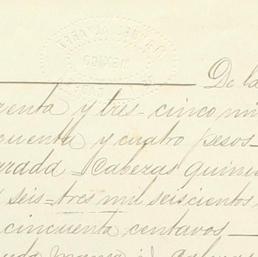 De la
renta y tres - cinco mil
cuenta y cuatro pesos -
rrada - Cabezas quinien
seis = tres mil seiscientos
cincuenta centavos